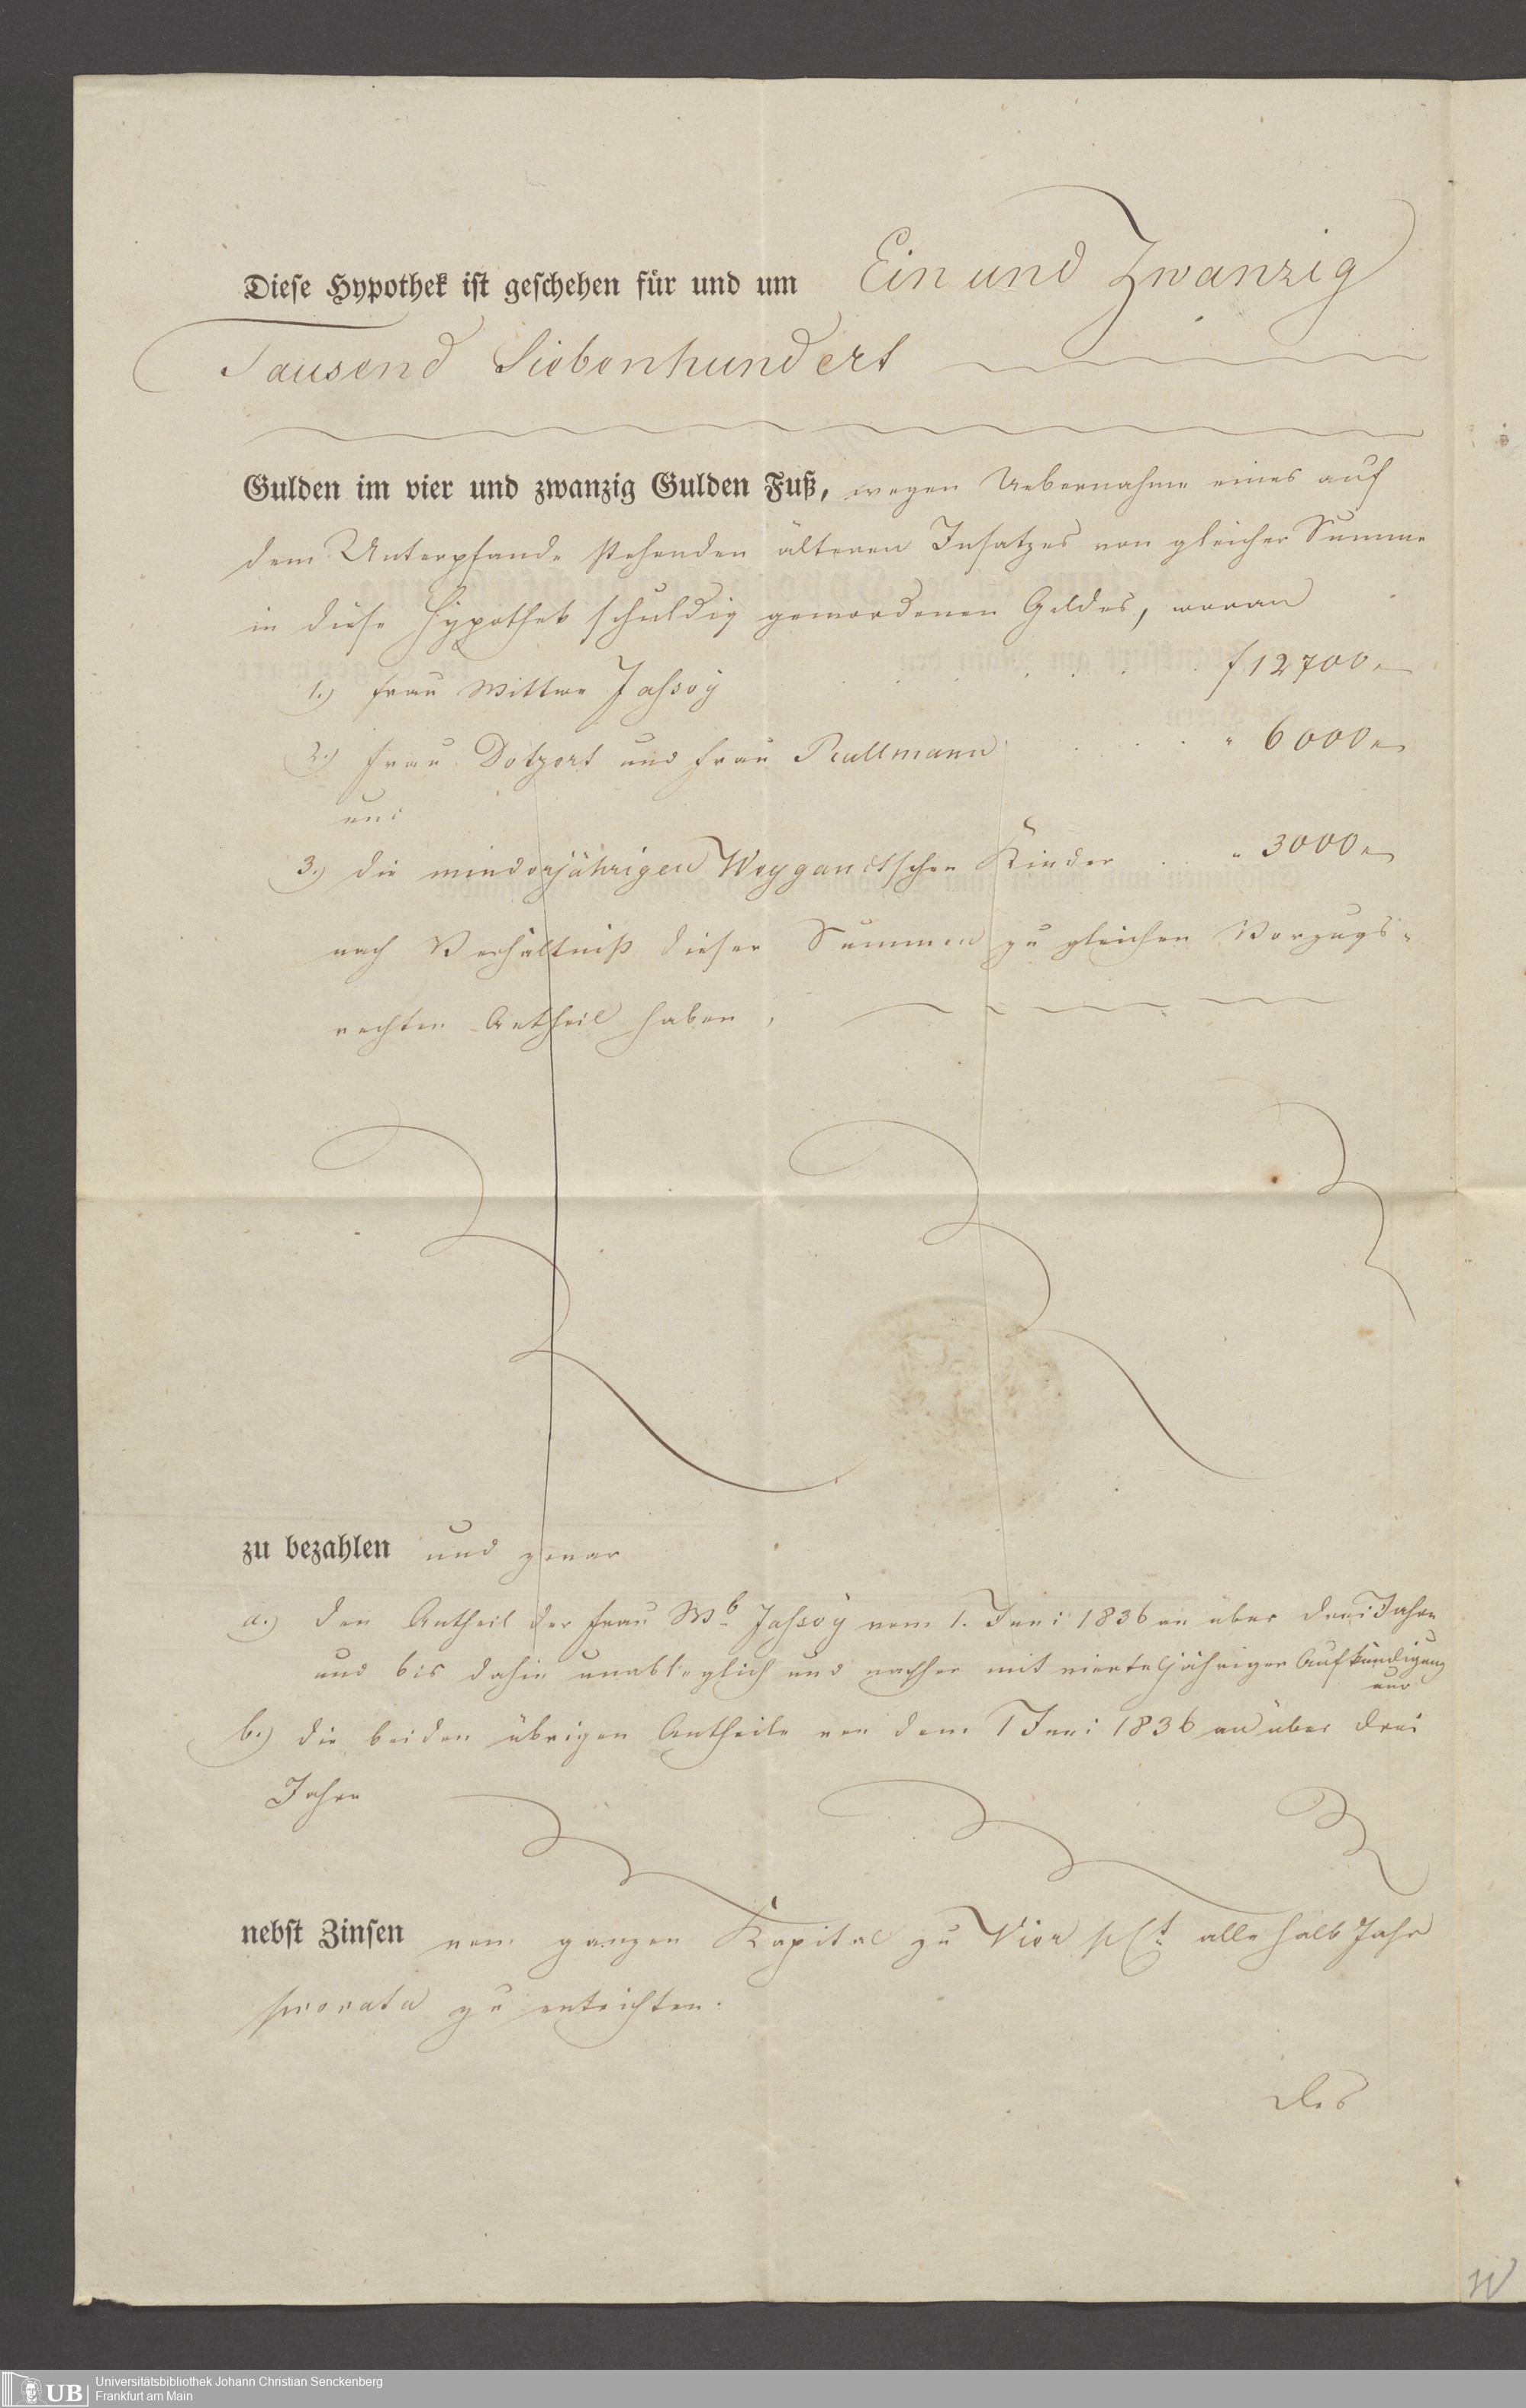 Diese Hypothek ist geschehen für und um Ein und Zwanzig
Tausend Siebenhundert
Gulden im vier und zwanzig Gulden Fuß, wegen Uebernahme eines auf
dem Unterpfande stehenden älteren Insatzes von gleicher Summe
in diese Hypothek schuldig gewordenen Geldes, woran
1.) Frau Wittwe Jassoy . . . . . . . f 12700.–
2.) Frau Dotzert und Frau Rullmann . . . . " 6000.–
und
3.) die minderjährigen Weygandtschen Kinder . . " 3000.–
nach Verhältniß dieser Summen zu gleichen Vorzugs-
rechten Antheil haben,
zu bezahlen und zwar
a.) den Antheil der Frau Wb Jassoy vom 1. Juni 1836 an über drei Jahre
und bis dahin unableglich und nachher mit vierteljähriger Aufkündigung
und
b.) die beiden übrigen Antheile von dem 1 Juni 1836 an über drei
Jahre
nebst Zinsen vom ganzen Kapital zu Vier pCt. alle halb Jahr
prorata zu entrichten.
Des
W
UB
Universitätsbibliothek Johann Christian Senckenberg
Frankfurt am Main